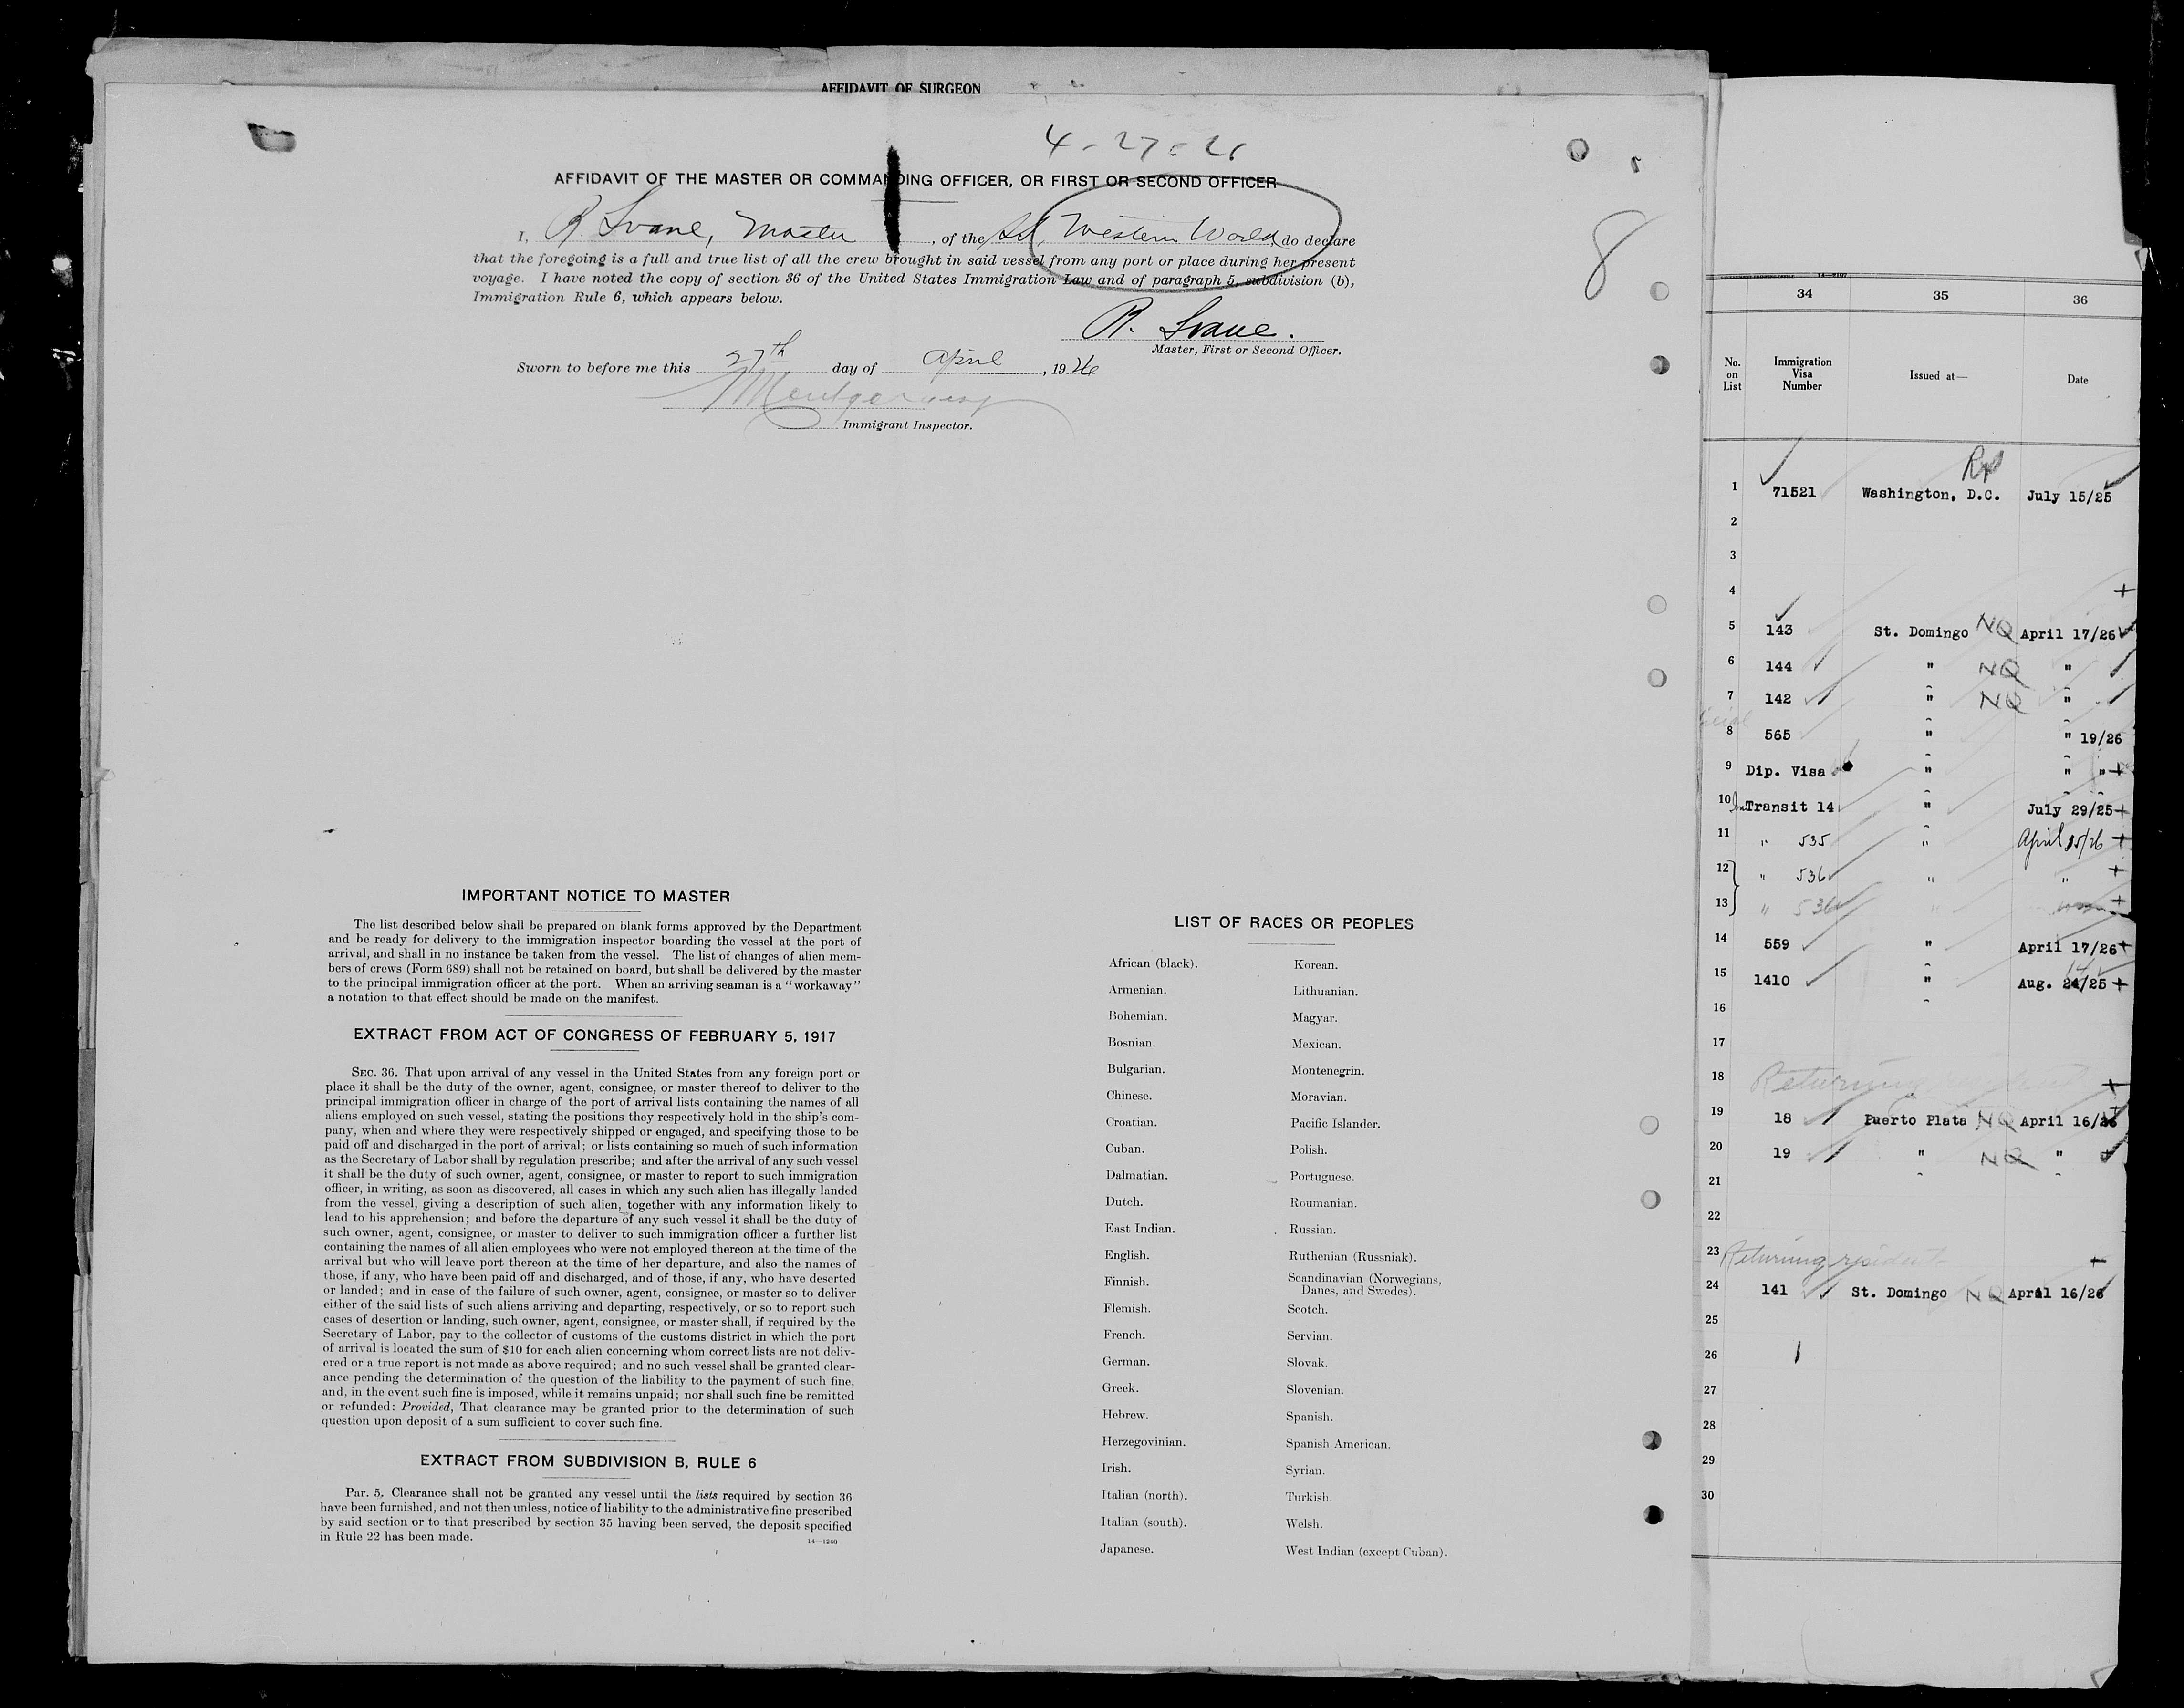 AFFIDAVIT OF SURGEON
4-27-26
AFFIDAVIT OF THE MASTER OR COMMANDING OFFICER, OR FIRST OR SECOND OFFICER
I, R. Svane, Master, of the SS. Western World, do declare
that the foregoing is a full and true list of all the crew brought in said vessel from any port or place during her present
voyage. I have noted the copy of section 36 of the United States Immigration Law and of paragraph 5, subdivision (b),
Immigration Rule 6, which appears below.
8
R. Svane.
Master, First or Second Officer.
Sworn to before me this 27th day of April, 1926
Montgomery
Immigrant Inspector.
IMPORTANT NOTICE TO MASTER
The list described below shall be prepared on blank forms approved by the Department
and be ready for delivery to the immigration inspector boarding the vessel at the port of
arrival, and shall in no instance be taken from the vessel. The list of changes of alien mem-
bers of crews (Form 689) shall not be retained on board, but shall be delivered by the master
to the principal immigration officer at the port. When an arriving seaman is a "workaway"
a notation to that effect should be made on the manifest.
EXTRACT FROM ACT OF CONGRESS OF FEBRUARY 5, 1917
SEC. 36. That upon arrival of any vessel in the United States from any foreign port or
place it shall be the duty of the owner, agent, consignee, or master thereof to deliver to the
principal immigration officer in charge of the port of arrival lists containing the names of all
aliens employed on such vessel, stating the positions they respectively hold in the ship's com-
pany, when and where they were respectively shipped or engaged, and specifying those to be
paid off and discharged in the port of arrival; or lists containing so much of such information
as the Secretary of Labor shall by regulation prescribe; and after the arrival of any such vessel
it shall be the duty of such owner, agent, consignee, or master to report to such immigration
officer, in writing, as soon as discovered, all cases in which any such alien has illegally landed
from the vessel, giving a description of such alien, together with any information likely to
lead to his apprehension; and before the departure of any such vessel it shall be the duty of
such owner, agent, consignee, or master to deliver to such immigration officer a further list
containing the names of all alien employees who were not employed thereon at the time of the
arrival but who will leave port thereon at the time of her departure, and also the names of
those, if any, who have been paid off and discharged, and of those, if any, who have deserted
or landed; and in case of the failure of such owner, agent, consignee, or master so to deliver
either of the said lists of such aliens arriving and departing, respectively, or so to report such
cases of desertion or landing, such owner, agent, consignee, or master shall, if required by the
Secretary of Labor, pay to the collector of customs of the customs district in which the port
of arrival is located the sum of $10 for each alien concerning whom correct lists are not deliv-
ered or a true report is not made as above required; and no such vessel shall be granted clear-
ance pending the determination of the question of the liability to the payment of such fine,
and, in the event such fine is imposed, while it remains unpaid; nor shall such fine be remitted
or refunded: Provided, That clearance may be granted prior to the determination of such
question upon deposit of a sum sufficient to cover such fine.
EXTRACT FROM SUBDIVISION B, RULE 6
Par. 5. Clearance shall not be granted any vessel until the lists required by section 36
have been furnished, and not then unless, notice of liability to the administrative fine prescribed
by said section or to that prescribed by section 35 having been served, the deposit specified
in Rule 22 has been made.
14—1240
LIST OF RACES OR PEOPLES
African (black). Korean.
Armenian. Lithuanian.
Bohemian. Magyar.
Bosnian. Mexican.
Bulgarian. Montenegrin.
Chinese. Moravian.
Croatian. Pacific Islander.
Cuban. Polish.
Dalmatian. Portuguese.
Dutch. Roumanian.
East Indian. Russian.
English. Ruthenian (Russniak).
Finnish. Scandinavian (Norwegians,
Danes, and Swedes).
Flemish. Scotch.
French. Servian.
German. Slovak.
Greek. Slovenian.
Hebrew. Spanish.
Herzegovinian. Spanish American.
Irish. Syrian.
Italian (north). Turkish.
Italian (south). Welsh.
Japanese. West Indian (except Cuban).
34 35 36
No. on List Immigration Visa Number Issued at— Date
1 71521 Washington, D.C. July 15/25
2
3
4 +
5 143 St. Domingo NQ April 17/26
6 144 " NQ "
7 142 " NQ "
8 565 " " 19/26
9 Dip. Visa " " " +
10 Transit 14 " July 29/25 +
11 " 535 " April 15/26 +
12 " 536 " " +
13 " 536 " +
14 559 " April 17/26 +
15 1410 " Aug. 24/25 +
16
17
18 Returning resident +
19 18 Puerto Plata NQ April 16/26
20 19 " NQ "
21
22
23 Returning resident +
24 141 St. Domingo NQ April 16/26
25
26
27
28
29
30